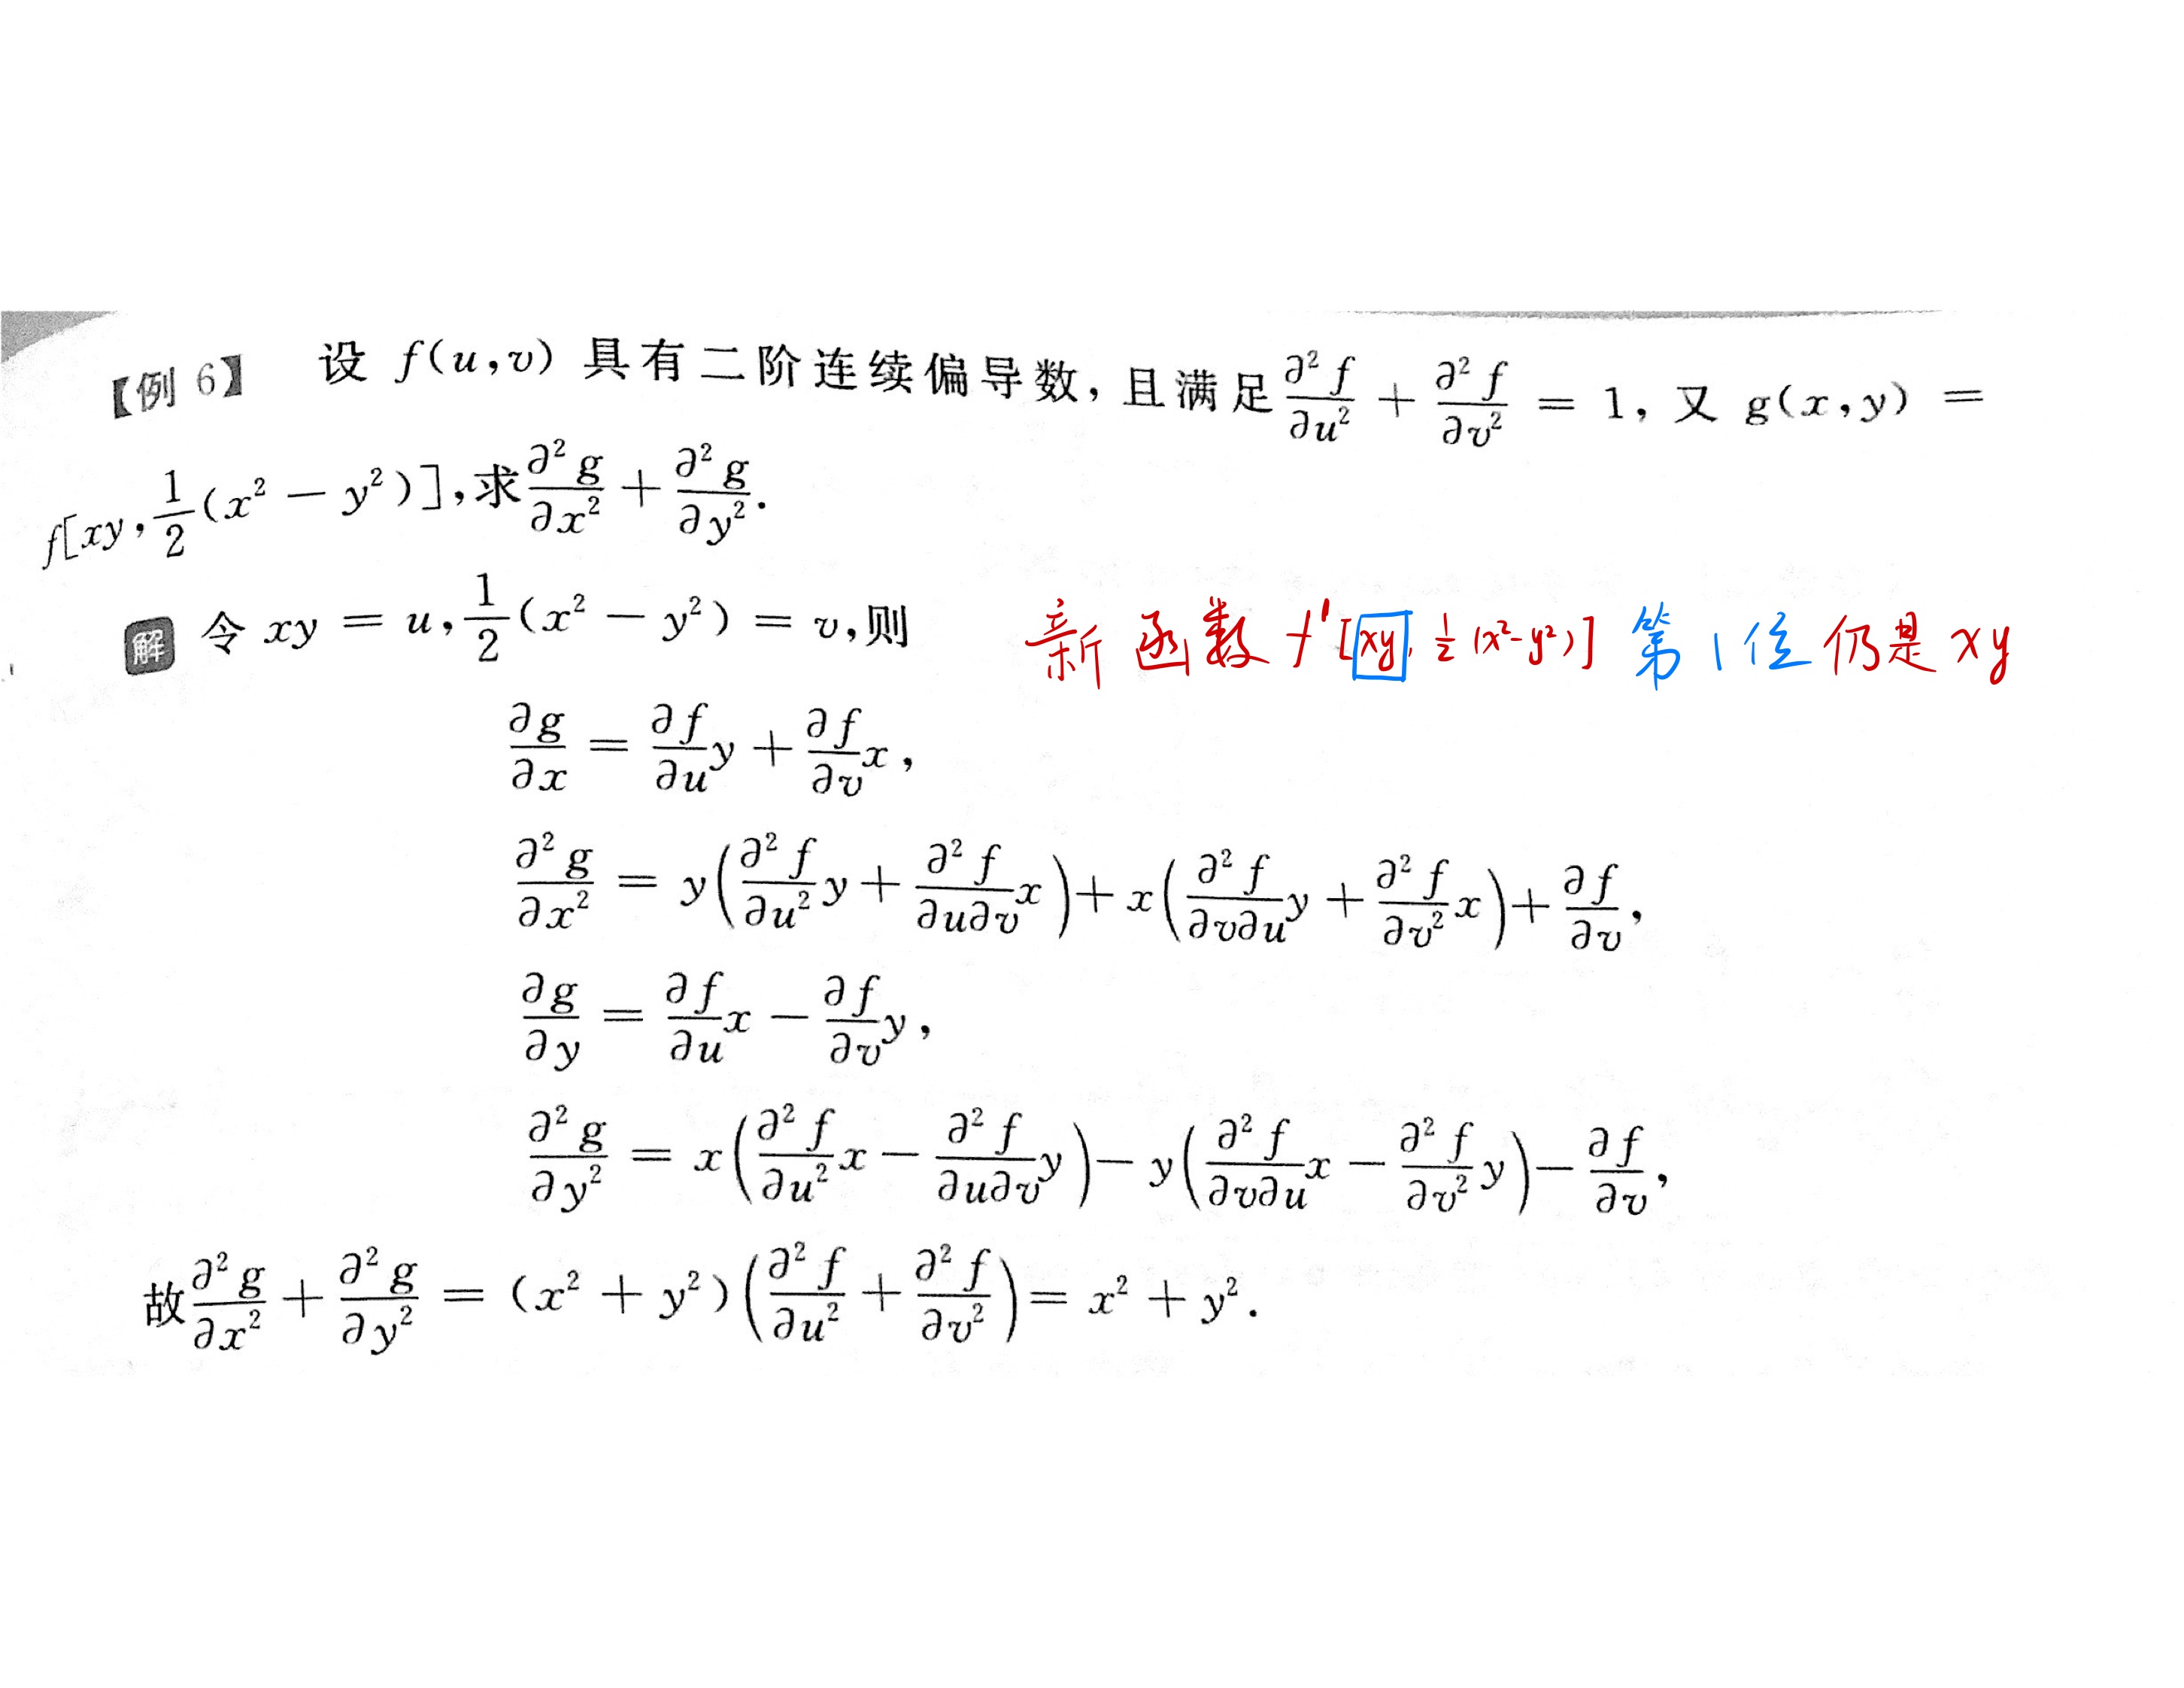 【例 6】 设 f(u,v) 具有二阶连续偏导数, 且满足 ∂²f/∂u² + ∂²f/∂v² = 1, 又 g(x,y) =
f[xy, 1/2(x² − y²)], 求 ∂²g/∂x² + ∂²g/∂y².
解 令 xy = u, 1/2(x² − y²) = v, 则
新函数 f'[xy, 1/2(x²-y²)] 第1位仍是xy
∂g/∂x = ∂f/∂u y + ∂f/∂v x,
∂²g/∂x² = y(∂²f/∂u² y + ∂²f/∂u∂v x) + x(∂²f/∂v∂u y + ∂²f/∂v² x) + ∂f/∂v,
∂g/∂y = ∂f/∂u x − ∂f/∂v y,
∂²g/∂y² = x(∂²f/∂u² x − ∂²f/∂u∂v y) − y(∂²f/∂v∂u x − ∂²f/∂v² y) − ∂f/∂v,
故 ∂²g/∂x² + ∂²g/∂y² = (x² + y²)(∂²f/∂u² + ∂²f/∂v²) = x² + y².